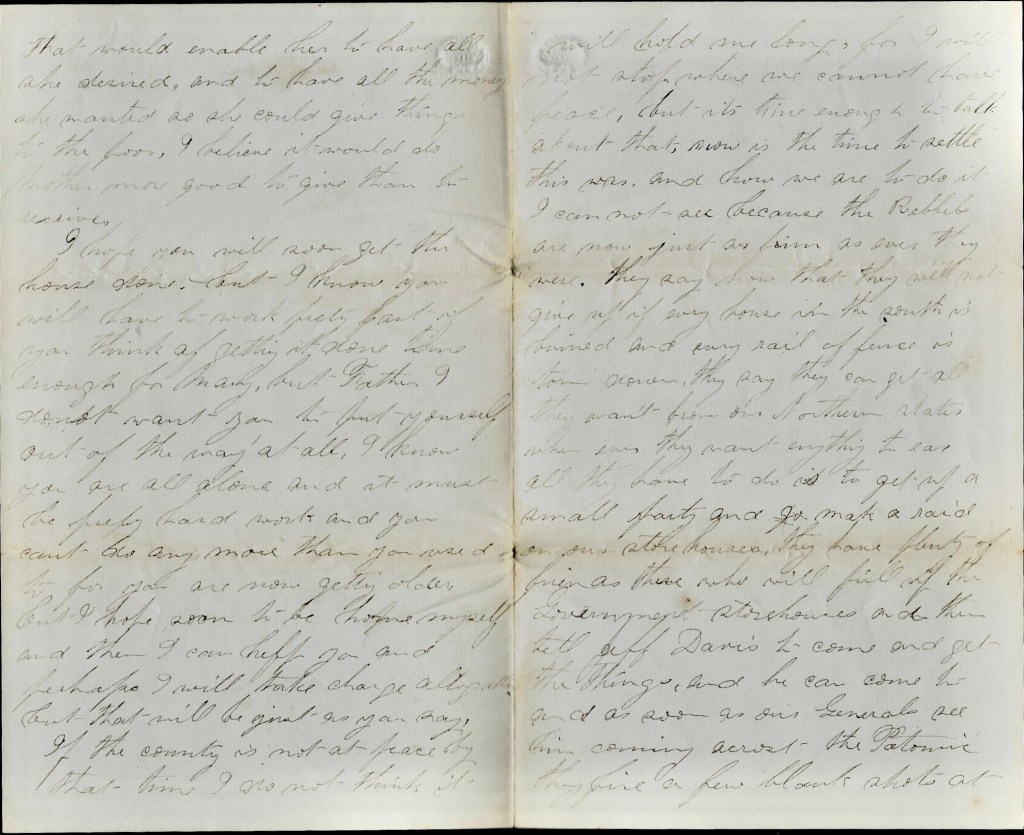 that would enable her to have all
she desired, and to have all the money
she wanted so she could give things
to the poor, I believe it would do
Mother more good to give than to
receive,
I hope you will soon get the
house done, but I know you
will have to work prety fast if
you think of getting it done time
enough for Mary, but Father I
do not want you to put yourself
out of the way at all, I know
you are all alone and it must
be prety hard work and you
cant do any more than you used
to for you are now getting older,
but I hope soon to be home myself
and then I can help you and
perhaps I will take charge
but that will be just as you say,
If the county is not at peace by
that time I do not think it
will hold me long, for I will
not stop where we cannot have
peace, but its time enough to talk
about that, now is the time to settle
this war. and how we are to do it
I can not see because the Rebbels
are now just as firm as ever they
were. they say now that they will not
give up if every house in the south is
burned and every rail of fence is
torn down, they say they can get all
they want from our Northern states
when ever they want enything to eas
all they have to do is to get up a
small party and go make a raid
on our store houses, they have plenty of
friends there who will fill up the
Government storehouses and then
tell Jeff Davis to come and get
the things, and he can come to
and as soon as our Generals see
him coming acrost the Potomic
they fire a few blank shots at